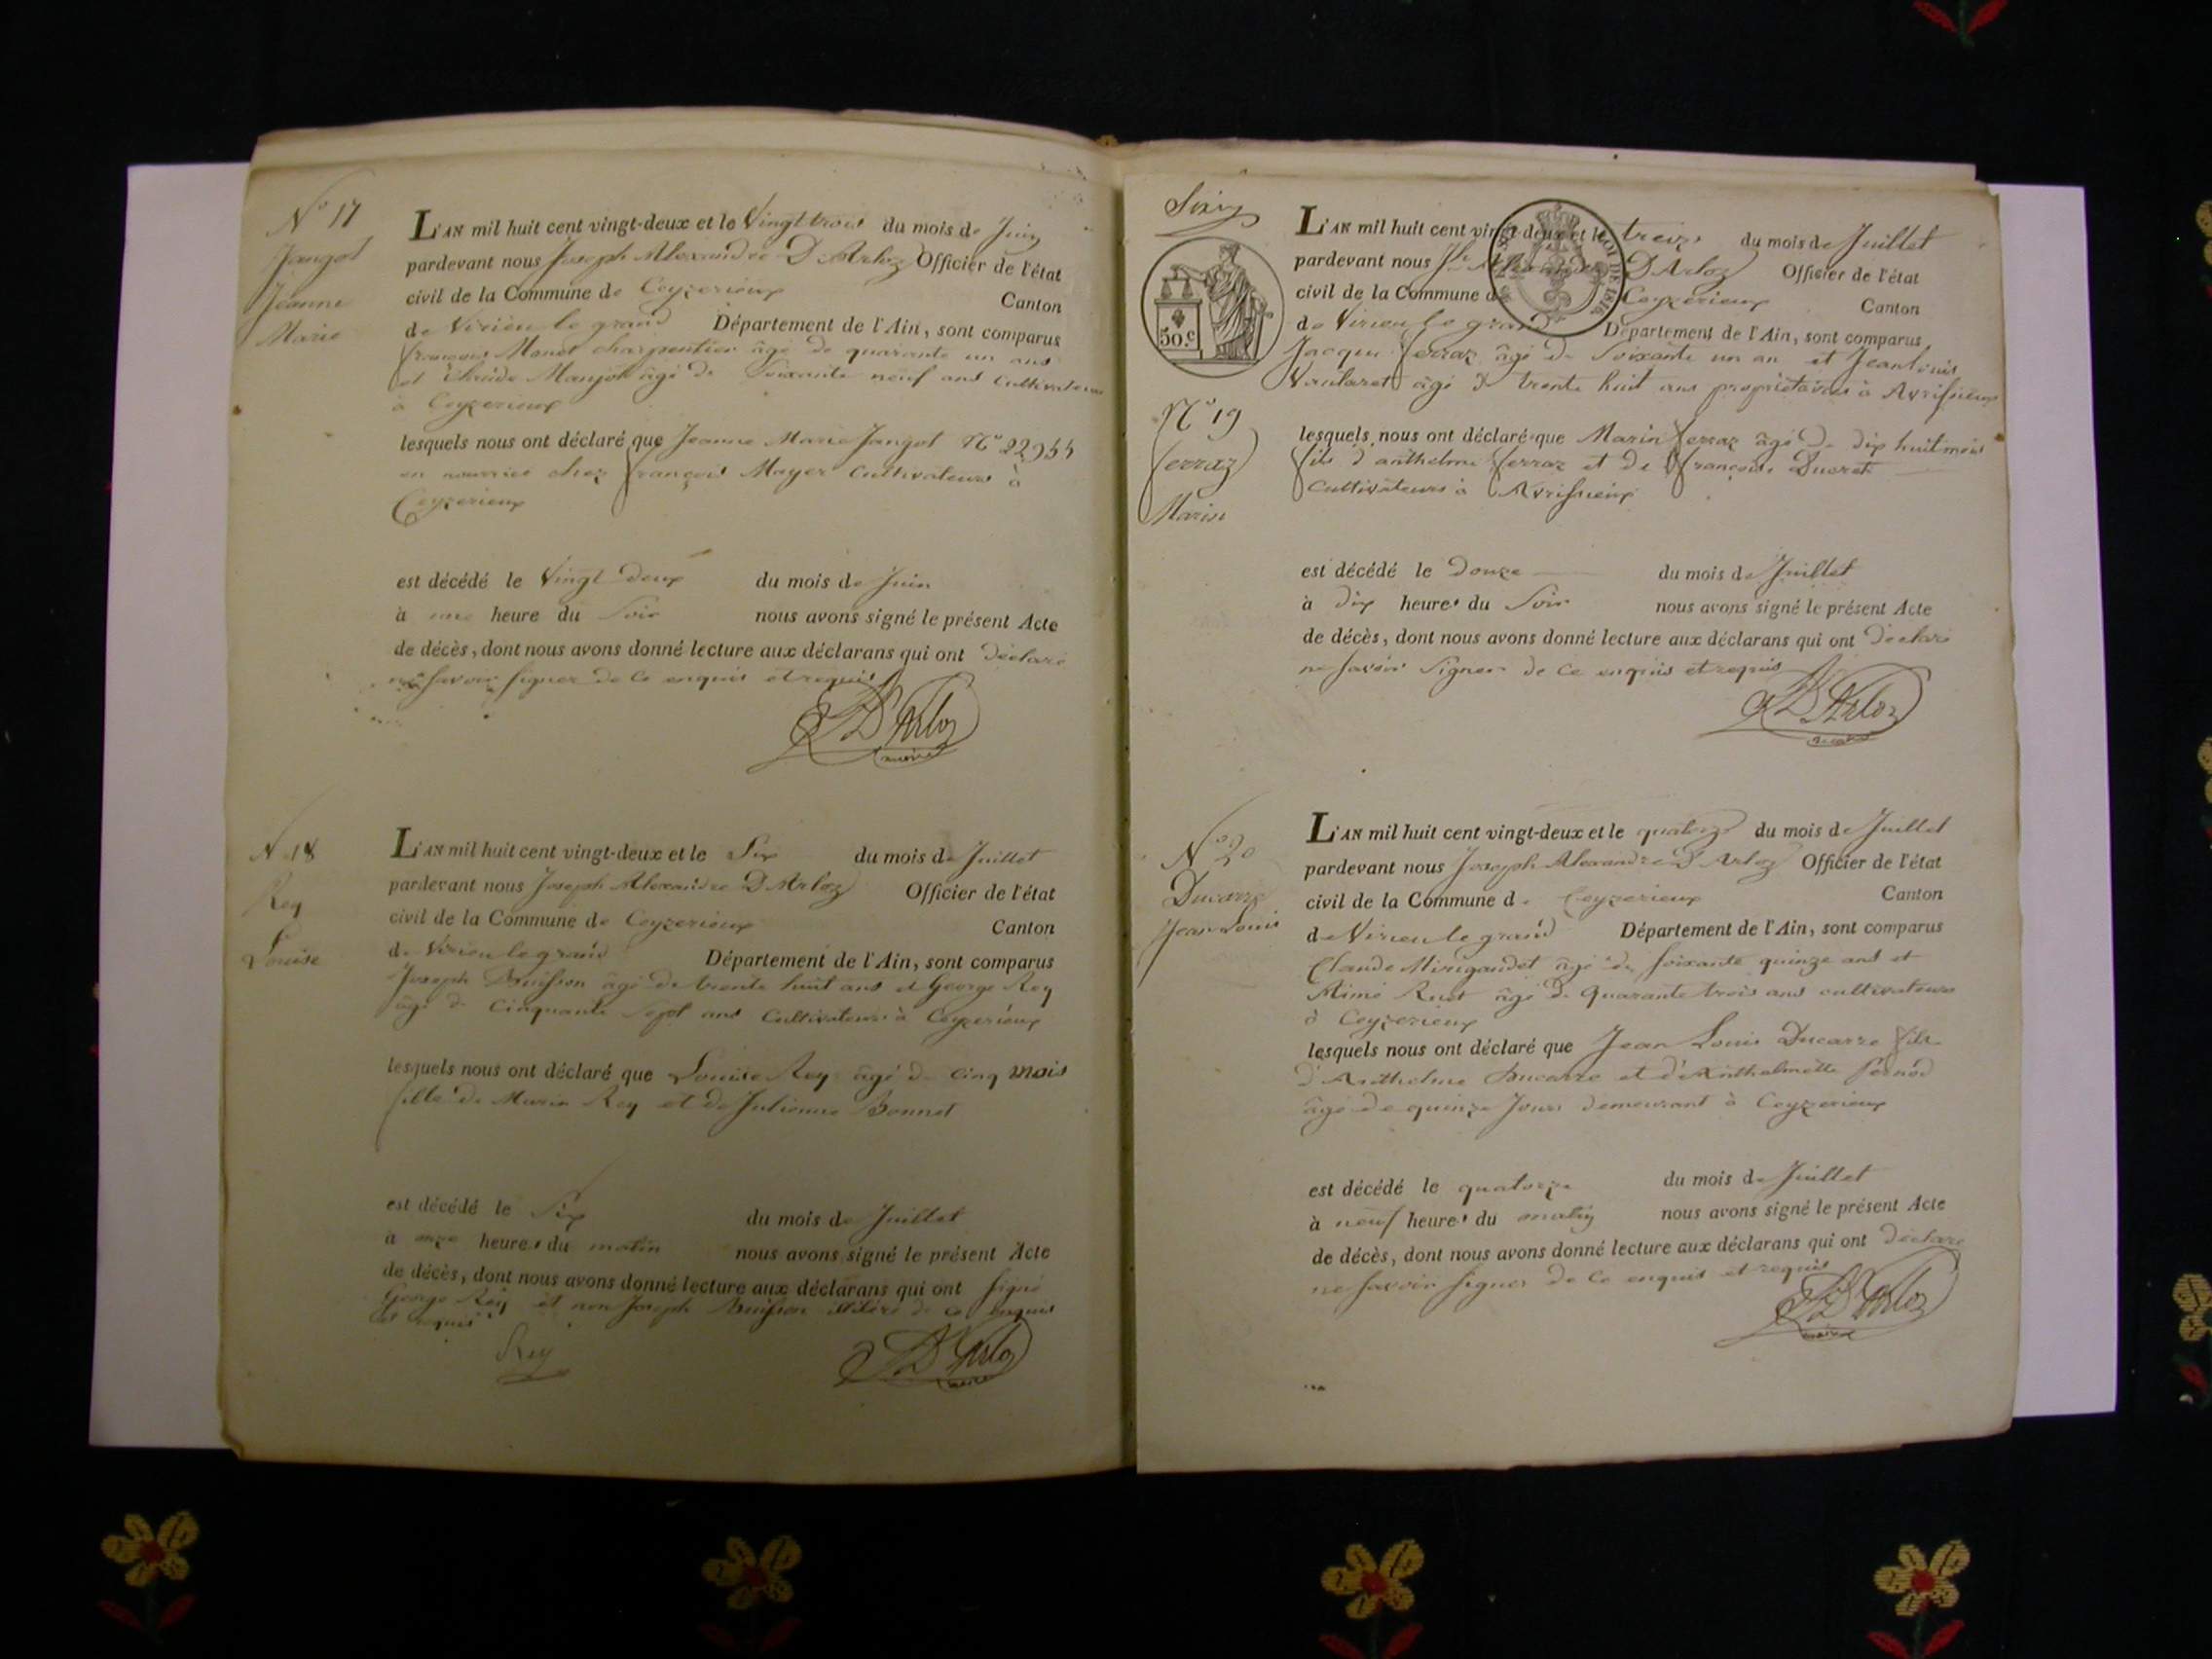 N° 17
Jangot
Jeanne
Marie
L'AN mil huit cent vingt-deux et le Vingt trois du mois de Juin
pardevant nous Joseph Alexandre D'Arloz Officier de l'état
civil de la Commune de Ceyzerieux Canton
de Virieu le grand Département de l'Ain, sont comparus
françois Monet charpentier âgé de quarante un ans
et Claude Manjot âgé de Soixante neuf ans Cultivateurs
à Ceyzerieux
lesquels nous ont déclaré que Jeanne Marie Jangot N° 22955
en nourrice chez françois Mayer Cultivateurs à
Ceyzerieux
est décédé le Vingt Deux du mois de Juin
à une heure du Soir nous avons signé le présent Acte
de décès, dont nous avons donné lecture aux déclarans qui ont déclaré
ne Savoir Signer de ce enquis et requis
D'Arloz
maire
N° 18
Rey
Louise
L'AN mil huit cent vingt-deux et le Six du mois de Juillet
pardevant nous Joseph Alexandre D'Arloz Officier de l'état
civil de la Commune de Ceyzerieux Canton
de Virieu le grand Département de l'Ain, sont comparus
Joseph Buisson âgé de trente huit ans et George Rey
âgé de Cinquante Sept ans Cultivateurs à Ceyzerieux
lesquels nous ont déclaré que Louise Rey âgé de Cinq mois
fille de Marin Rey et de Julienne Bonnet
est décédé le Six du mois de Juillet
à onze heures du matin nous avons signé le présent Acte
de décès, dont nous avons donné lecture aux déclarans qui ont Signé
George Rey et non Joseph Buisson illitéré de ce enquis
et requis
Rey
D'Arloz
maire
Sixig
50.c
LOI DE 1816
N° 19
ferraz
Marin
L'AN mil huit cent vingt-deux et le treize du mois de Juillet
pardevant nous Jh Alexandre D'Arloz Officier de l'état
civil de la Commune de Ceyzerieux Canton
de Virieu le grand Département de l'Ain, sont comparus
Jacque ferraz âgé de Soixante un an et Jean Louis
âgé de trente huit ans propriétaires à Avrissieux
lesquels nous ont déclaré que Marin ferraz âgé de dix huit mois
fils d'anthelme ferraz et de françoise Ducret
Cultivateurs à Avrissieux
est décédé le Douze du mois de Juillet
à Dix heures du Soir nous avons signé le présent Acte
de décès, dont nous avons donné lecture aux déclarans qui ont déclaré
ne Savoir Signer de ce enquis et requis
D'Arloz
maire
N° 20
Ducarre
Jean Louis
L'AN mil huit cent vingt-deux et le quatorze du mois de Juillet
pardevant nous Joseph Alexandre D'Arloz Officier de l'état
civil de la Commune de Ceyzerieux Canton
de Virieu le grand Département de l'Ain, sont comparus
Claude Mirigaudet âgé de Soixante quinze ans et
Aimé Ruet âgé de Quarante trois ans cultivateurs
à Ceyzerieux
lesquels nous ont déclaré que Jean Louis Ducarre fils
d'Anthelme Ducarre et d'Anthelmette Pernod
âgé de quinze Jours demeurant à Ceyzerieux
est décédé le quatorze du mois de Juillet
à neuf heures du matin nous avons signé le présent Acte
de décès, dont nous avons donné lecture aux déclarans qui ont déclaré
ne Savoir Signer de ce enquis et requis
D'Arloz
maire